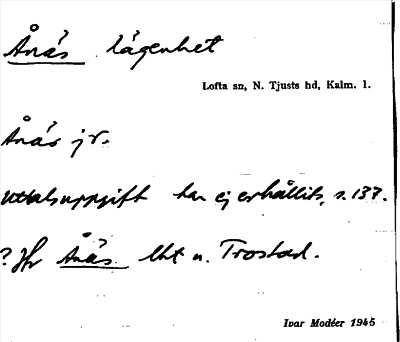 Ånás lägenhet
Lofta sn, N. Tjusts hd, Kalm. l.
Ånás jr.
Uttalsuppgift har ej erhållits, s. 137.
? Jfr Ånás lht u. Trostad.
Ivar Modéer 1945